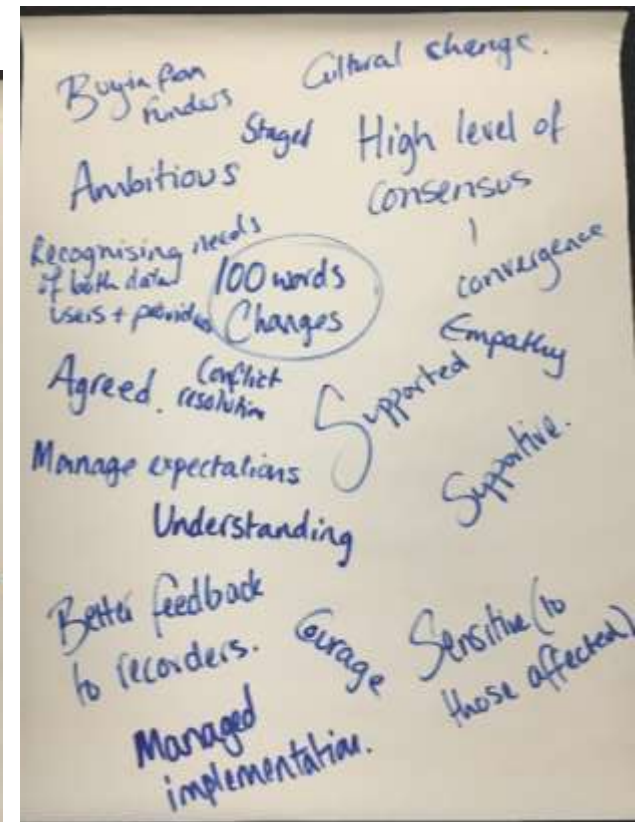 Buyin from
funders
Cultural change.
Staged
High level of
consensus
convergence
Ambitious
Recognising needs
of both data
users + providers
100 words
Changes
Empathy
Supported
Agreed.
Conflict
resolution
Manage expectations
Supportive.
Understanding
Better feedback
to recorders.
Courage
Sensitive (to
those affected)
Managed
implementation.